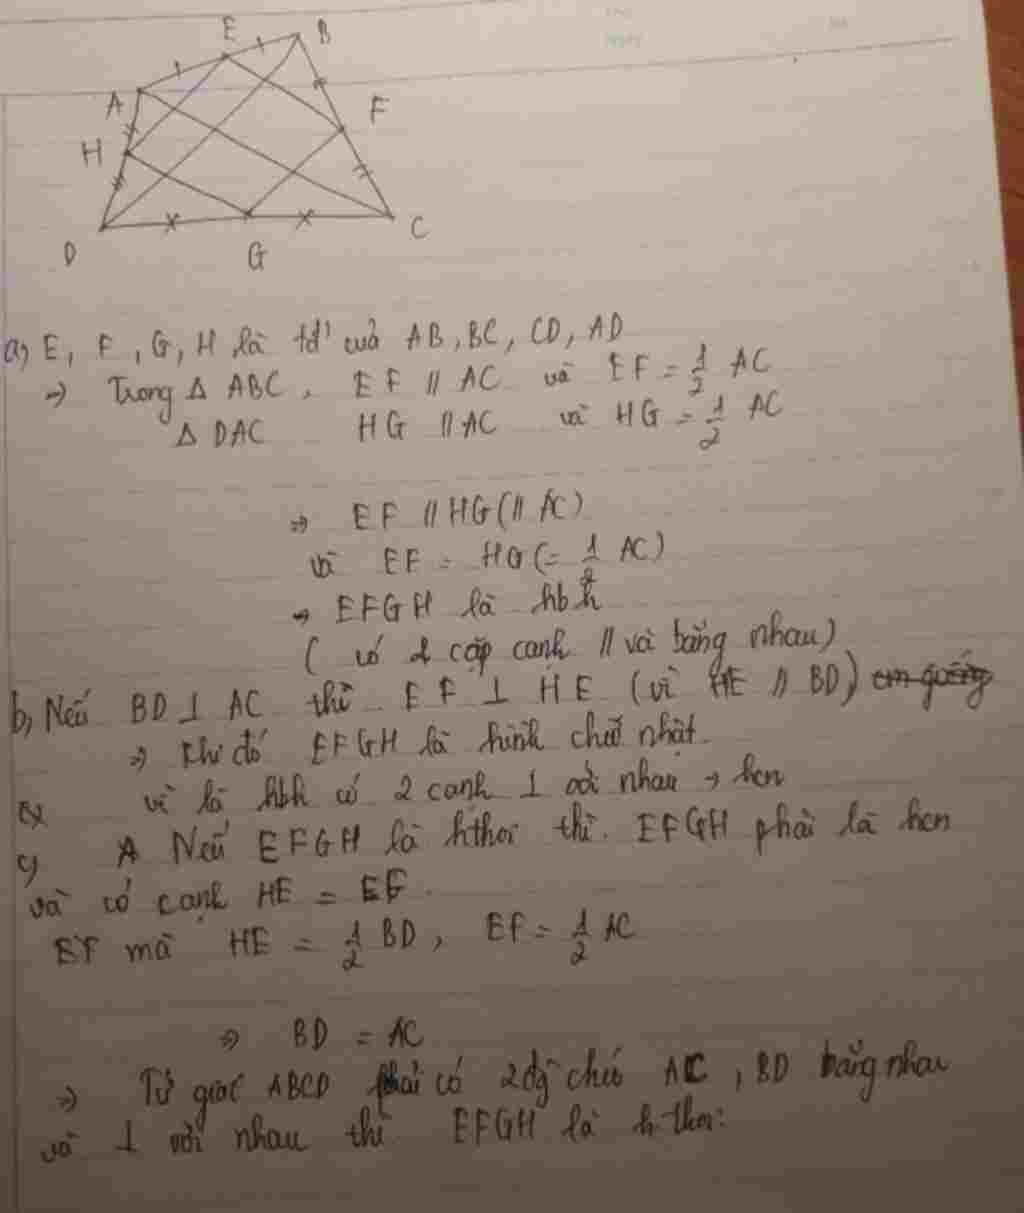 E B
A F
H
D G C
a, E, F, G, H là tđ' cuả AB, BC, CD, AD
→ Trong Δ ABC, EF // AC và EF = 1/2 AC
Δ DAC HG // AC và HG = 1/2 AC
⇒ EF // HG (// AC)
và EF = HG (= 1/2 AC)
→ EFGH là hbh
( có 2 cặp cạnh // và bằng nhau)
b, Nếu BD ⊥ AC thì EF ⊥ HE (vì HE // BD)
⇒ Khi đó EFGH là hình chữ nhật
vì là hbh có 2 cạnh ⊥ với nhau → hcn
c, Nếu EFGH là hthoi thì EFGH phải là hcn
và có cạnh HE = EF.
EF mà HE = 1/2 BD, EF = 1/2 AC
⇒ BD = AC
⇒ Tứ giác ABCD phải có 2 đg chéo AC, BD bằng nhau
và ⊥ với nhau thì EFGH là h thoi.